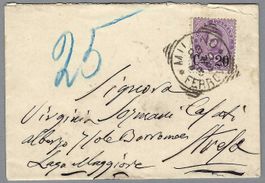 25
MILANO
FERROVIA
C.mi 20
Signora
Virginia Sormani Casati
albergo Isole Borromee
Stresa
Lago Maggiore